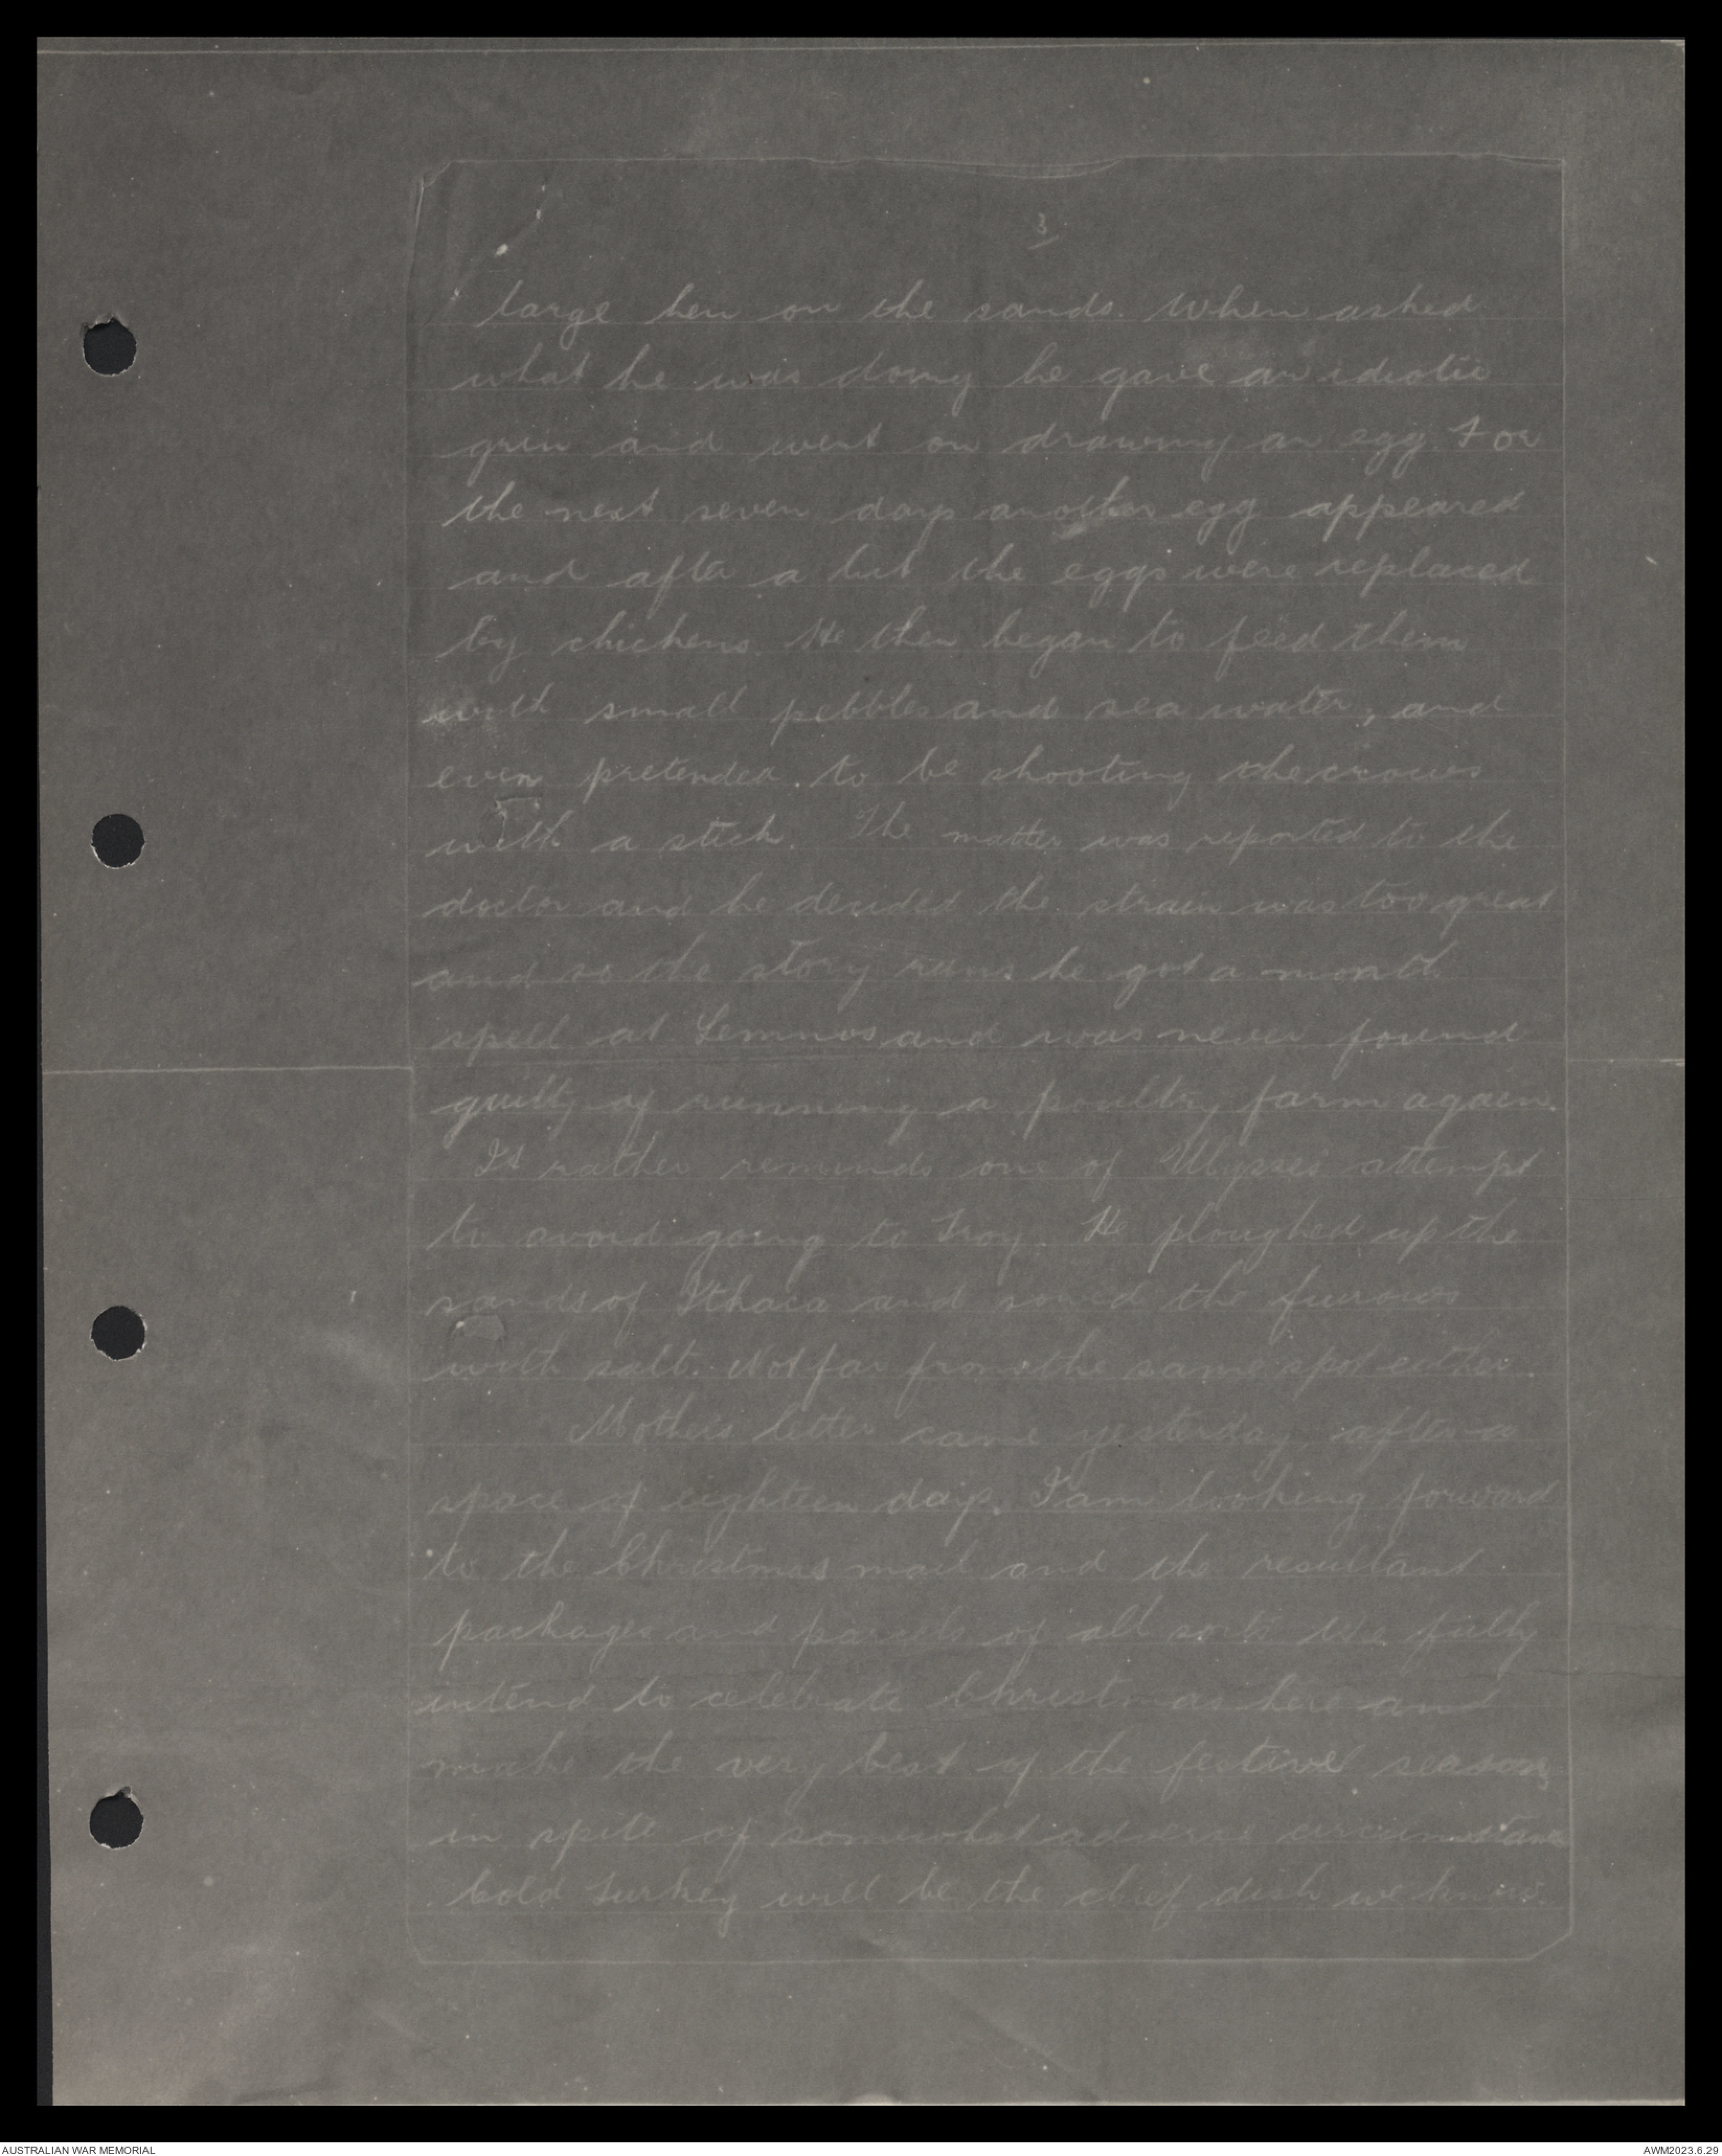 3
large hen on the sands. When asked
what he was doing he gave an idiotic
grin and went on drawing an egg. For
the next seven days another egg appeared
and after a bit the eggs were replaced
by chickens. He then began to feed them
with small pebbles and sea water, and
even pretended to be shooting the crows
with a stick. The matter was reported to the
doctor and he decided the strain was too great
and so the story runs he got a month
spell at Lemnos and was never found
guilty of running a poultry farm again.
It rather reminds one of Ulysses' attempt
to avoid going to Troy. He ploughed up the
sands of Ithaca and sowed the furrows
with salt. Not far from the same spot either.
Mother's letter came yesterday after a
space of eighteen days. I am looking forward
to the Christmas mail and the resultant
packages and parcels of all sorts. We fully
intend to celebrate Christmas here and
make the very best of the festive season
in spite of somewhat adverse circumstance
Cold turkey will be the chief dish we know.
AUSTRALIAN WAR MEMORIAL
AWM2023.6.29